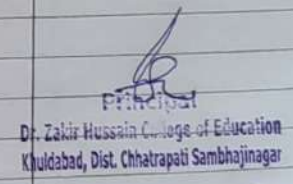 Principal
Dr. Zakir Hussain College of Education
Khuldabad, Dist. Chhatrapati Sambhajinagar